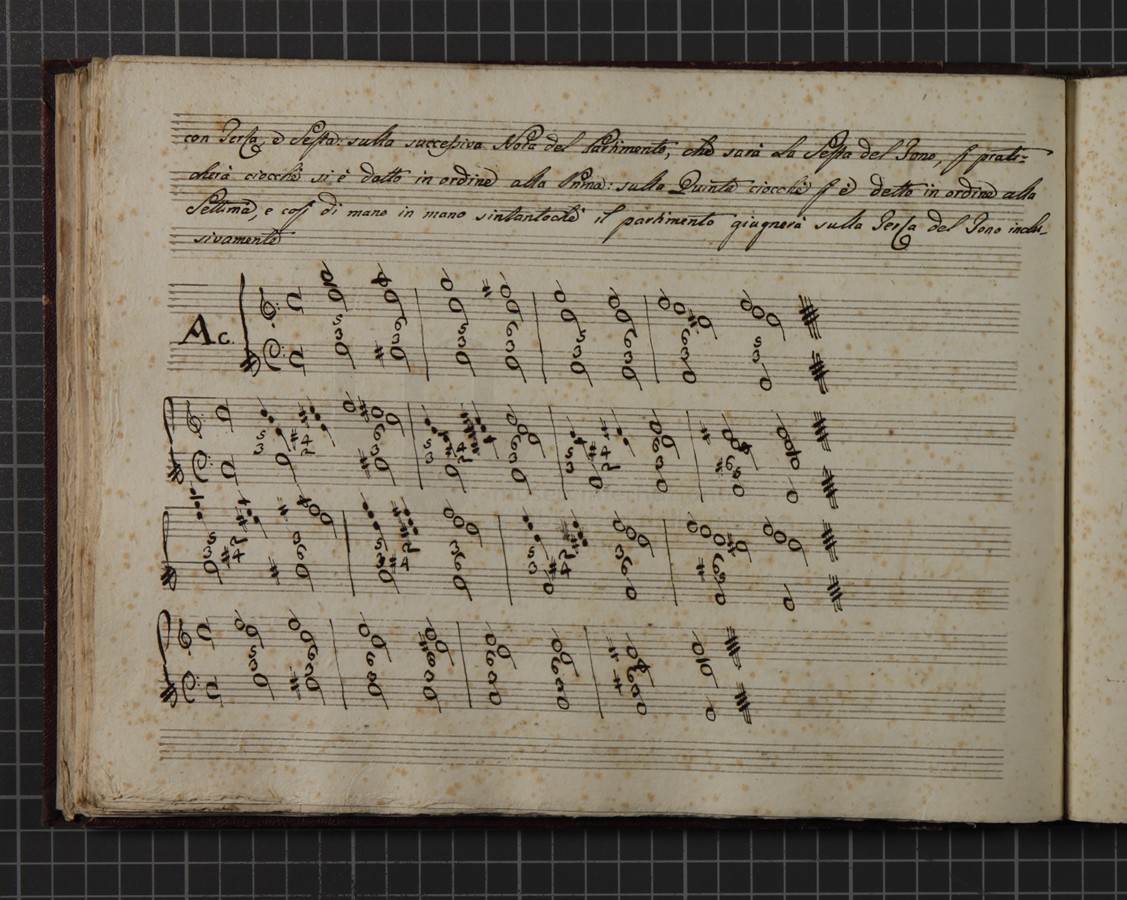 con Terza, e Sesta: sulla successiva Nota del Partimento, che sarà La Sesta del Tono, si prati=
cherà ciocchè si è datto in ordine alla Prima: sulla Quinta ciocchè si è detto in ordine alla
Settima, e così di mano in mano sintantochè il partimento giugnerà sulla Terza del Tono inclu-
sivamente
Ac.